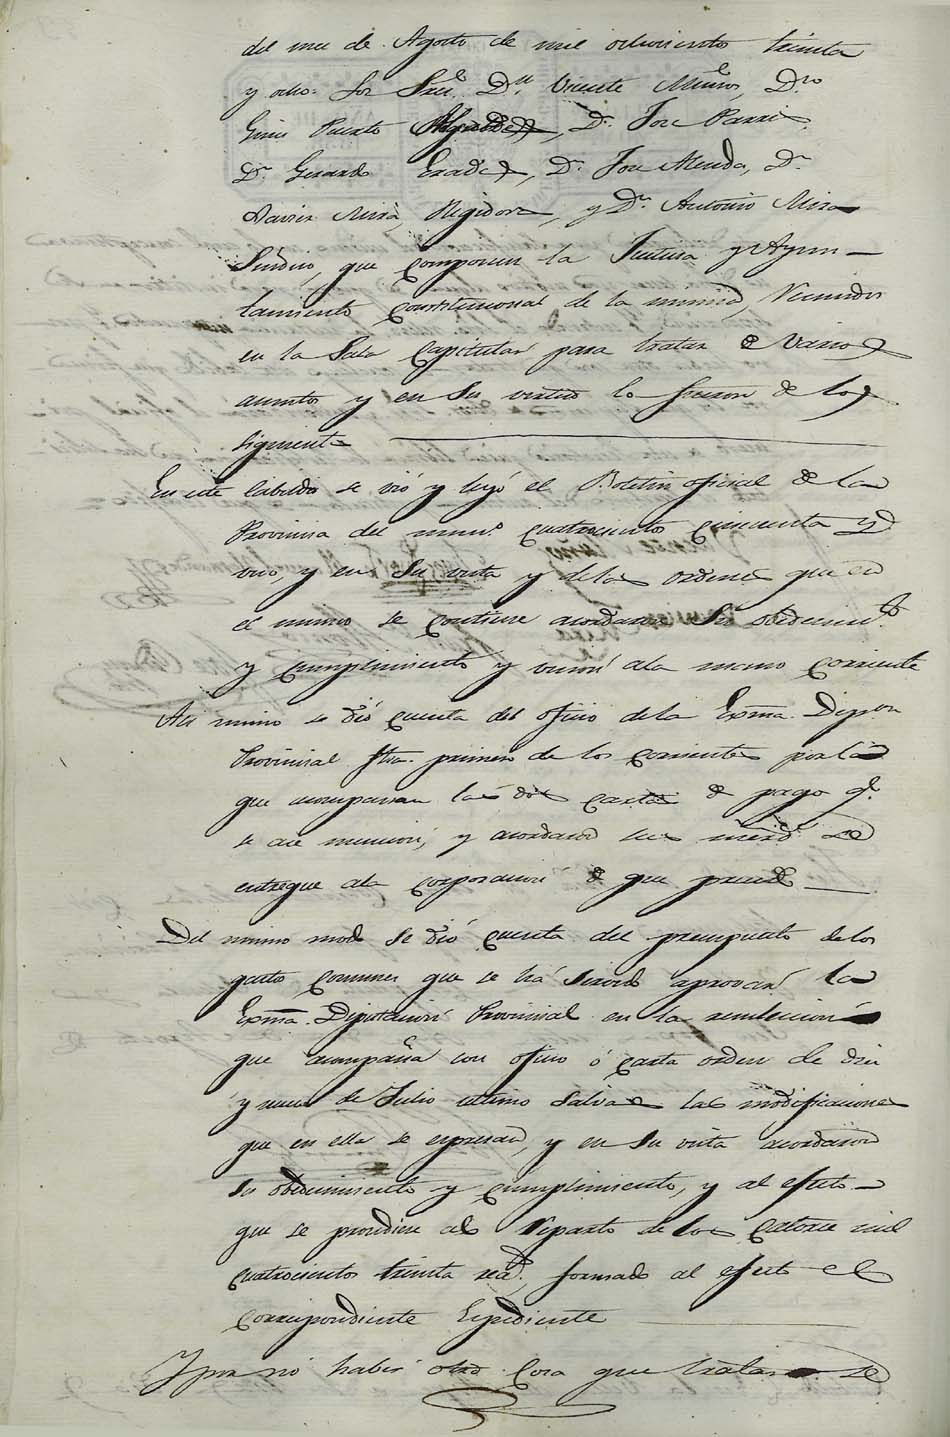 del mes de Agosto de mil ochociento treinta
y ocho. Los Sres. Dn. Vicente Muños, Dn.
Gines Puerto Alcaldes, Dn. Jose Parres,
Dn. Gerardo, Dn. Jose Merida, Dn.
Javier Mira, Regidores, y Dn. Antonio Mira
Sindico, que componen la Justicia y Ayun-
tamiento constitucional de la misma, Reunidos
en la Sala Capitular para tratar de Varios
asuntos y en su virtud lo hicieron de los
siguiente
En este Cabildo se vió y leyó el Boletin oficial de la
Provincia del num.º cuatrociento cincuenta y
uno, y en su vista y de las ordenes que en
el mismo se contiene acordaron su obedecim.to
y cumplimiento y union ala mano corriente
Asi mismo se dió cuenta del oficio de la Exma. Dipon
Provincial fha. primero de los corrientes por la
que acompañan las dos cartas de pago q.e
se ace mencion, y acordaron sus mercd. se
entregue ala corporacion de que procede
Del mismo modo se dió cuenta del presupuesto de los
gastos comunes que se há servido aprovar la
Exma. Diputacion Provincial en la
que acompaña con oficio ó carta orden de diez
y nueve de Julio ultimo salvas las modificaciones
que en ella se espresan, y en su vista acordaron
su obedecimiento y cumplimiento, y al efecto
que se procediese al Reparto de los catorce mil
cuatrociento treinta rea.s, formado al efecto el
correspondiente Espediente
Y por nó haber otra Cosa que tratar se